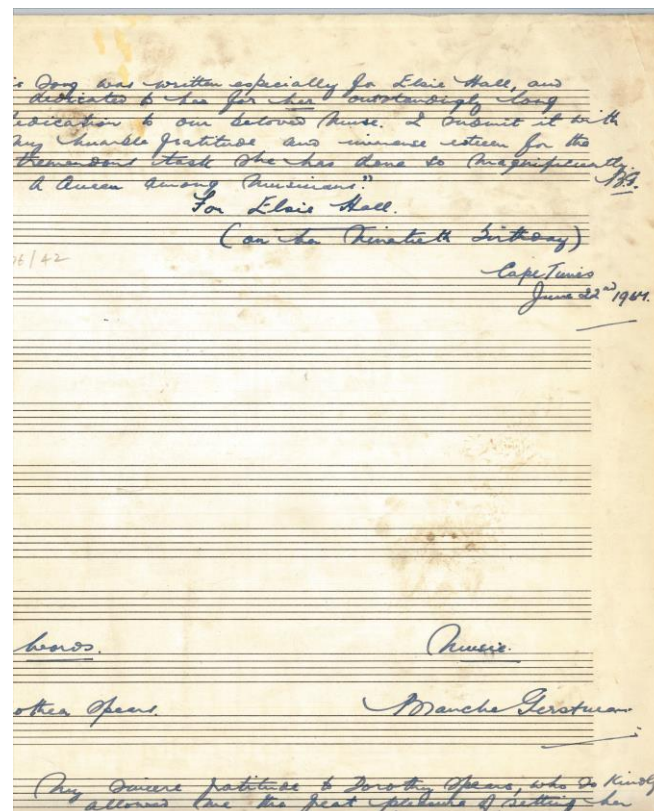 is Song was written especially for Elsie Hall, and
dedicated to her for her outstandingly long
dedication to our beloved Muse. I submit it with
my humble gratitude and immense esteem for the
tremendous task she has done so magnificently.
"A Queen among Musicians." B.G.
For Elsie Hall.
(on her Ninetieth Birthday)
/42
Cape Times
June 22nd 1967.
Words. Music.
othea Spears. Blanche Gerstman
My sincere gratitude to Dorothy Spears, who so kindly
allowed me the great pleasure of setting her